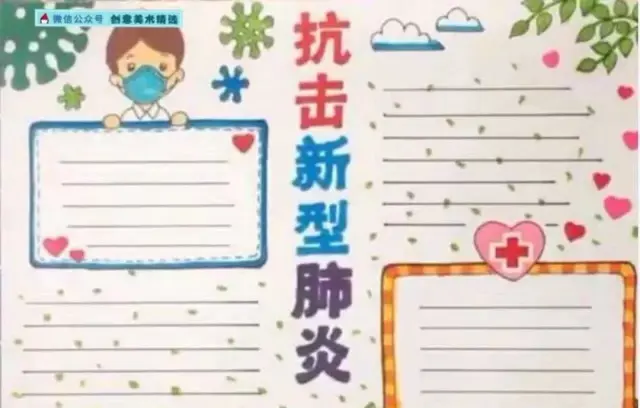 微信公众号 创意美术精选
抗击新型肺炎